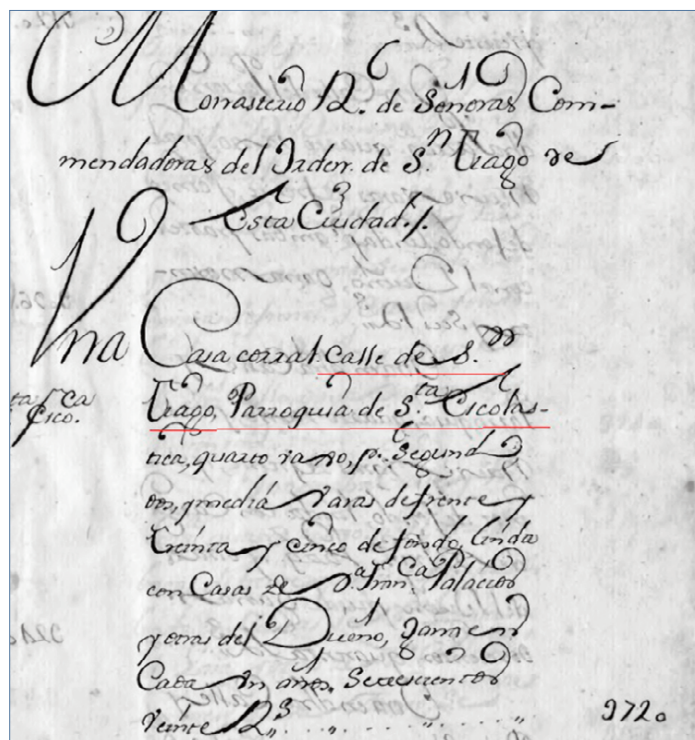 Monasterio R. de Señoras Com-
mendadoras del Orden. de S.n Tiago de
Esta Ciudad.
Vna Casa corral calle de S.n
Tiago, Parroquia de S.ta Escolas-
tica, quarto
y media Varas de frente y
treinta y cinco de fondo, linda
con Casas de D.a Fran.ca Palacios
y otras del Dueño, Gana en
Cada un año, Setecientos
veinte R.s
720